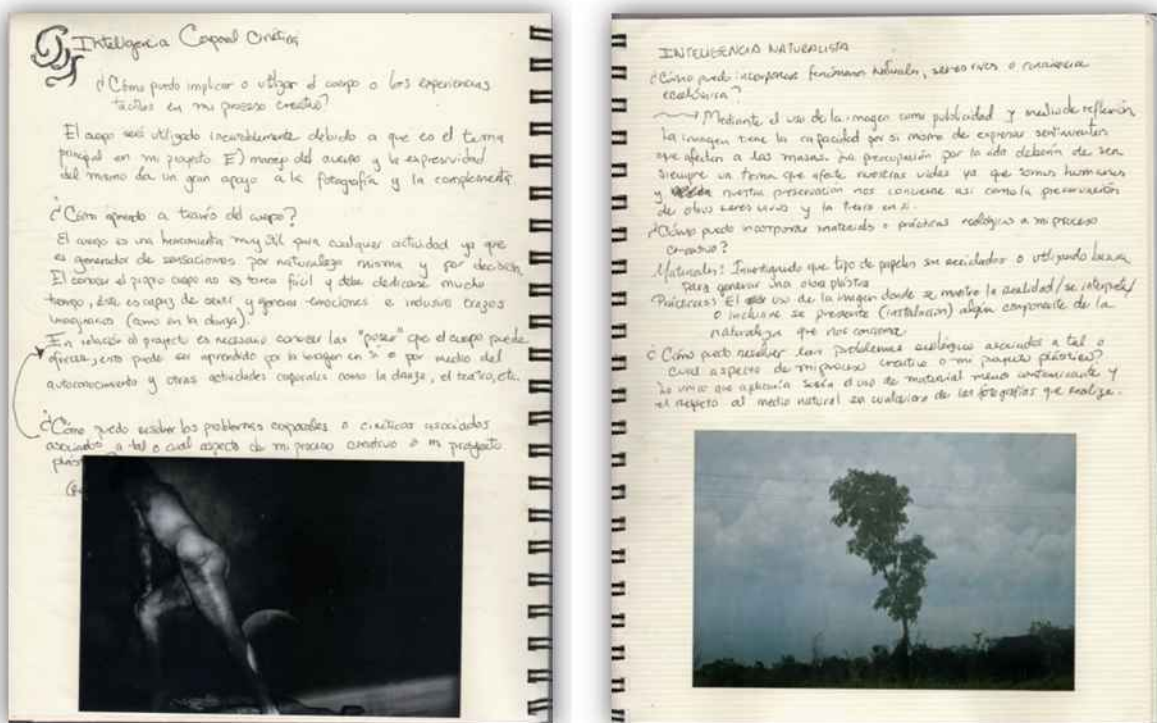 Inteligencia Corporal Cinética
¿Cómo puedo implicar o utilizar el cuerpo o las experiencias
táctiles en mi proceso creativo?
El cuerpo será utilizado debido a que es el tema
principal en mi proyecto El manejo del cuerpo y la expresividad
del mismo da un gran apoyo a la fotografía y la complementa.
¿Cómo aprendo a través del cuerpo?
El cuerpo es una herramienta muy útil para cualquier actividad ya que
es generador de sensaciones por naturaleza misma y por decisión
El conocer el propio cuerpo no es tarea fácil y debe dedicarse mucho
tiempo, éste es capaz de sentir y generar emociones e inclusive trazos
imaginarios (como en la danza).
En relación al proyecto es necesario conocer las "poses" que el cuerpo puede
ofrecer, esto puede ser aprendido por la imagen en sí o por medio del
autoconocimiento y otras actividades corporales como la danza, el teatro, etc.
¿Cómo puedo resolver los problemas corporales o cinéticos asociados
asociados a tal o cual aspecto de mi proceso creativo o mi proyecto
INTELIGENCIA NATURALISTA
¿Cómo puedo incorporar fenómenos naturales, seres vivos o conciencia
ecológica?
Mediante el uso de la imagen como publicidad y medio de reflexión
La imagen tiene la capacidad por si misma de expresar sentimientos
que afecten a las masas. La preocupación por la vida debería de ser
siempre un tema que afecte nuestras vidas ya que somos humanos
y nuestra preservación nos conviene así como la preservación
de otros seres vivos y la tierra en sí.
¿Cómo puedo incorporar materiales o prácticas ecológicas a mi proceso
creativo?
Materiales: Investigando que tipo de papeles son reciclados o utilizando basura
para generar una obra plástica
El uso de la imagen donde se muestre la realidad/se interprete/
o inclusive se presente (instalación) algún componente de la
naturaleza que nos concierna
¿Cómo puedo resolver problemas ecológicos asociados a tal o
cual aspecto de mi proceso creativo o mi proyecto plástico?
Lo único que aplicaría sería el uso de material menos contaminante y
el respeto al medio natural en cualquiera de las fotografías que realize.